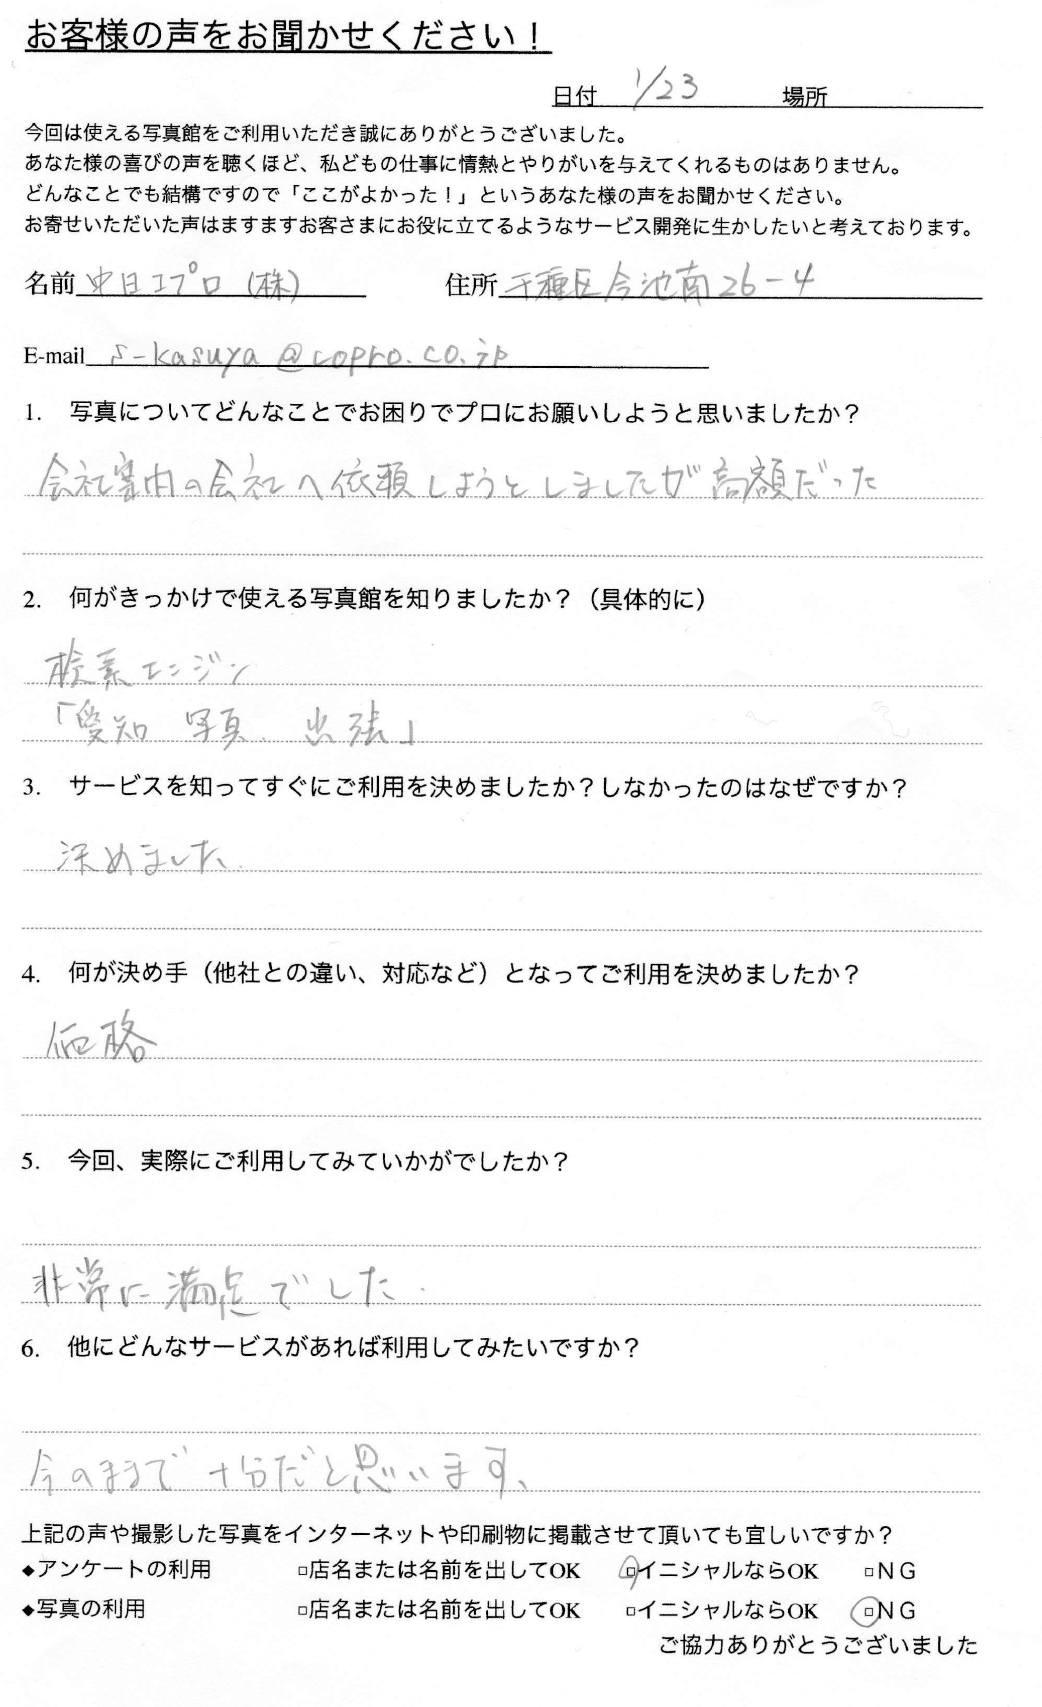 お客様の声をお聞かせください！
日付 1/23 場所
今回は使える写真館をご利用いただき誠にありがとうございました。
あなた様の喜びの声を聴くほど、私どもの仕事に情熱とやりがいを与えてくれるものはありません。
どんなことでも結構ですので「ここがよかった！」というあなた様の声をお聞かせください。
お寄せいただいた声はますますお客さまにお役に立てるようなサービス開発に生かしたいと考えております。
名前 中日コプロ（株） 住所 千種区今池南26-4
E-mail s-kasuya@copro.co.jp
1. 写真についてどんなことでお困りでプロにお願いしようと思いましたか？
会社案内の会社へ依頼しようとしましたが高額だった
2. 何がきっかけで使える写真館を知りましたか？（具体的に）
検索エンジン
「愛知 写真 出張」
3. サービスを知ってすぐにご利用を決めましたか？しなかったのはなぜですか？
決めました
4. 何が決め手（他社との違い、対応など）となってご利用を決めましたか？
価格
5. 今回、実際にご利用してみていかがでしたか？
非常に満足でした.
6. 他にどんなサービスがあれば利用してみたいですか？
今のままで十分だと思います、
上記の声や撮影した写真をインターネットや印刷物に掲載させて頂いても宜しいですか？
◆アンケートの利用 □店名または名前を出してOK □イニシャルならOK □ＮＧ
◆写真の利用 □店名または名前を出してOK □イニシャルならOK □ＮＧ
ご協力ありがとうございました